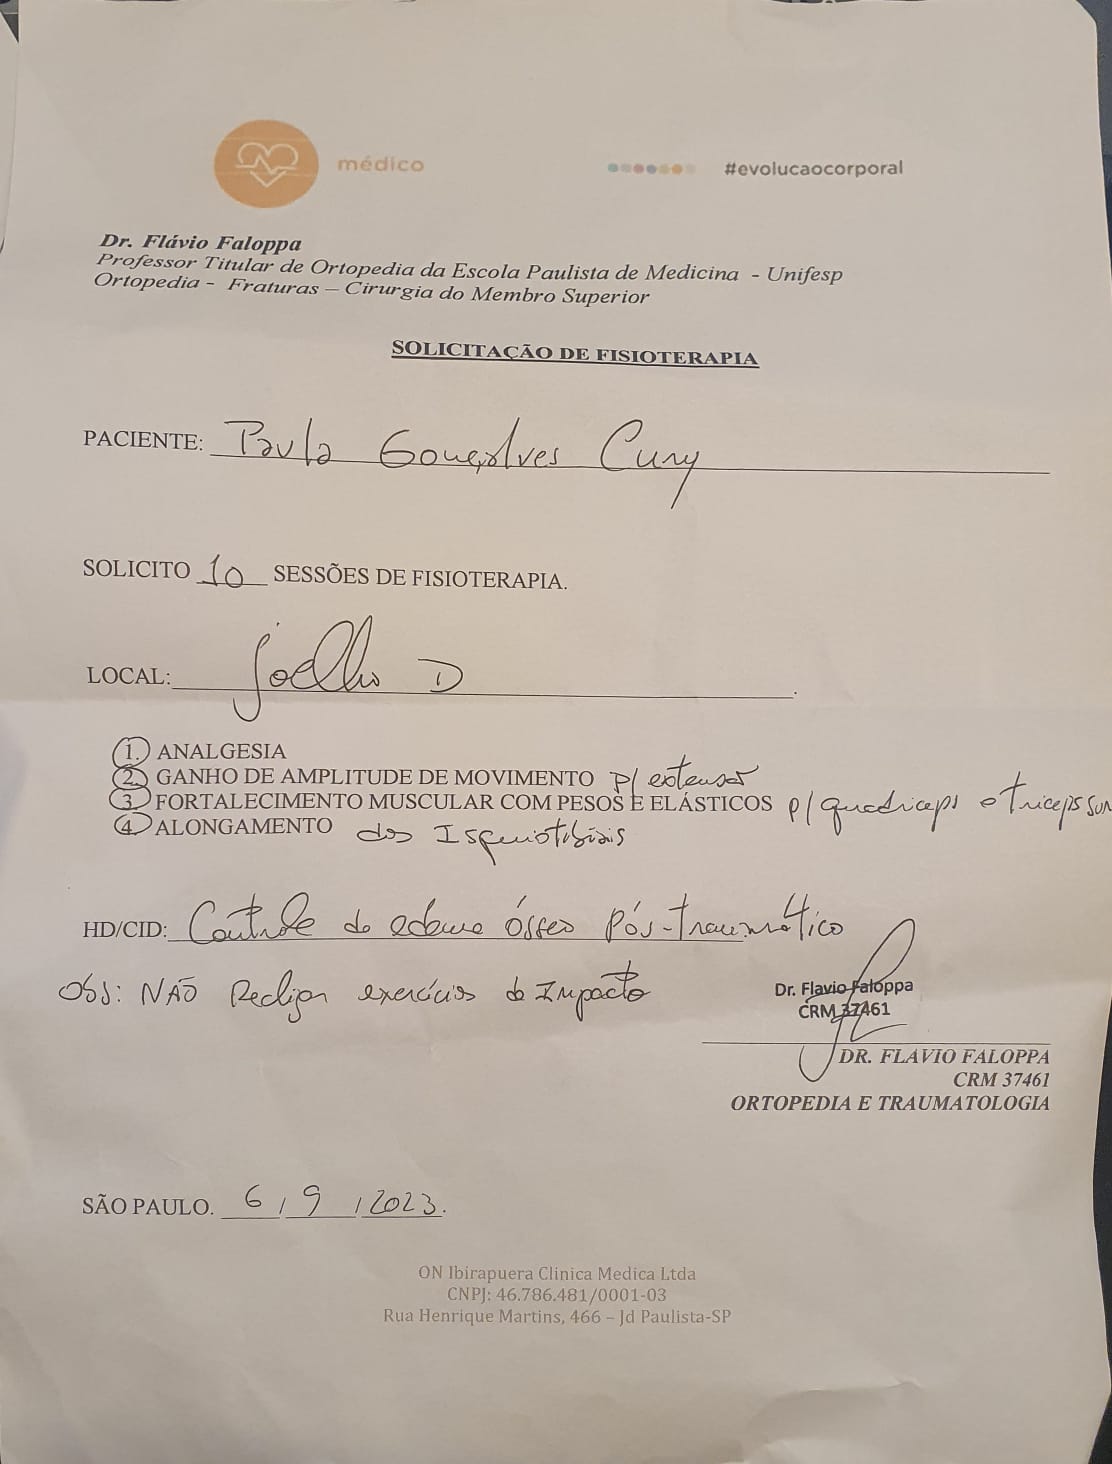 médico
#evolucaocorporal
Dr. Flávio Faloppa
Professor Titular de Ortopedia da Escola Paulista de Medicina - Unifesp
Ortopedia - Fraturas – Cirurgia do Membro Superior
SOLICITAÇÃO DE FISIOTERAPIA
PACIENTE: Paula Gonçalves Cury
SOLICITO 10 SESSÕES DE FISIOTERAPIA.
LOCAL: Joelho D.
1. ANALGESIA
2. GANHO DE AMPLITUDE DE MOVIMENTO p/ extensor
3. FORTALECIMENTO MUSCULAR COM PESOS E ELÁSTICOS p/ quadriceps e triceps sur
4. ALONGAMENTO dos Isquiotibiais
HD/CID: Controle do edema ósseo pós-traumático
Obs: NÃO Realizar exercícios de Impacto
Dr. Flavio Faloppa
CRM 37461
DR. FLAVIO FALOPPA
CRM 37461
ORTOPEDIA E TRAUMATOLOGIA
SÃO PAULO. 6 / 9 / 2023.
ON Ibirapuera Clinica Medica Ltda
CNPJ: 46.786.481/0001-03
Rua Henrique Martins, 466 – Jd Paulista-SP